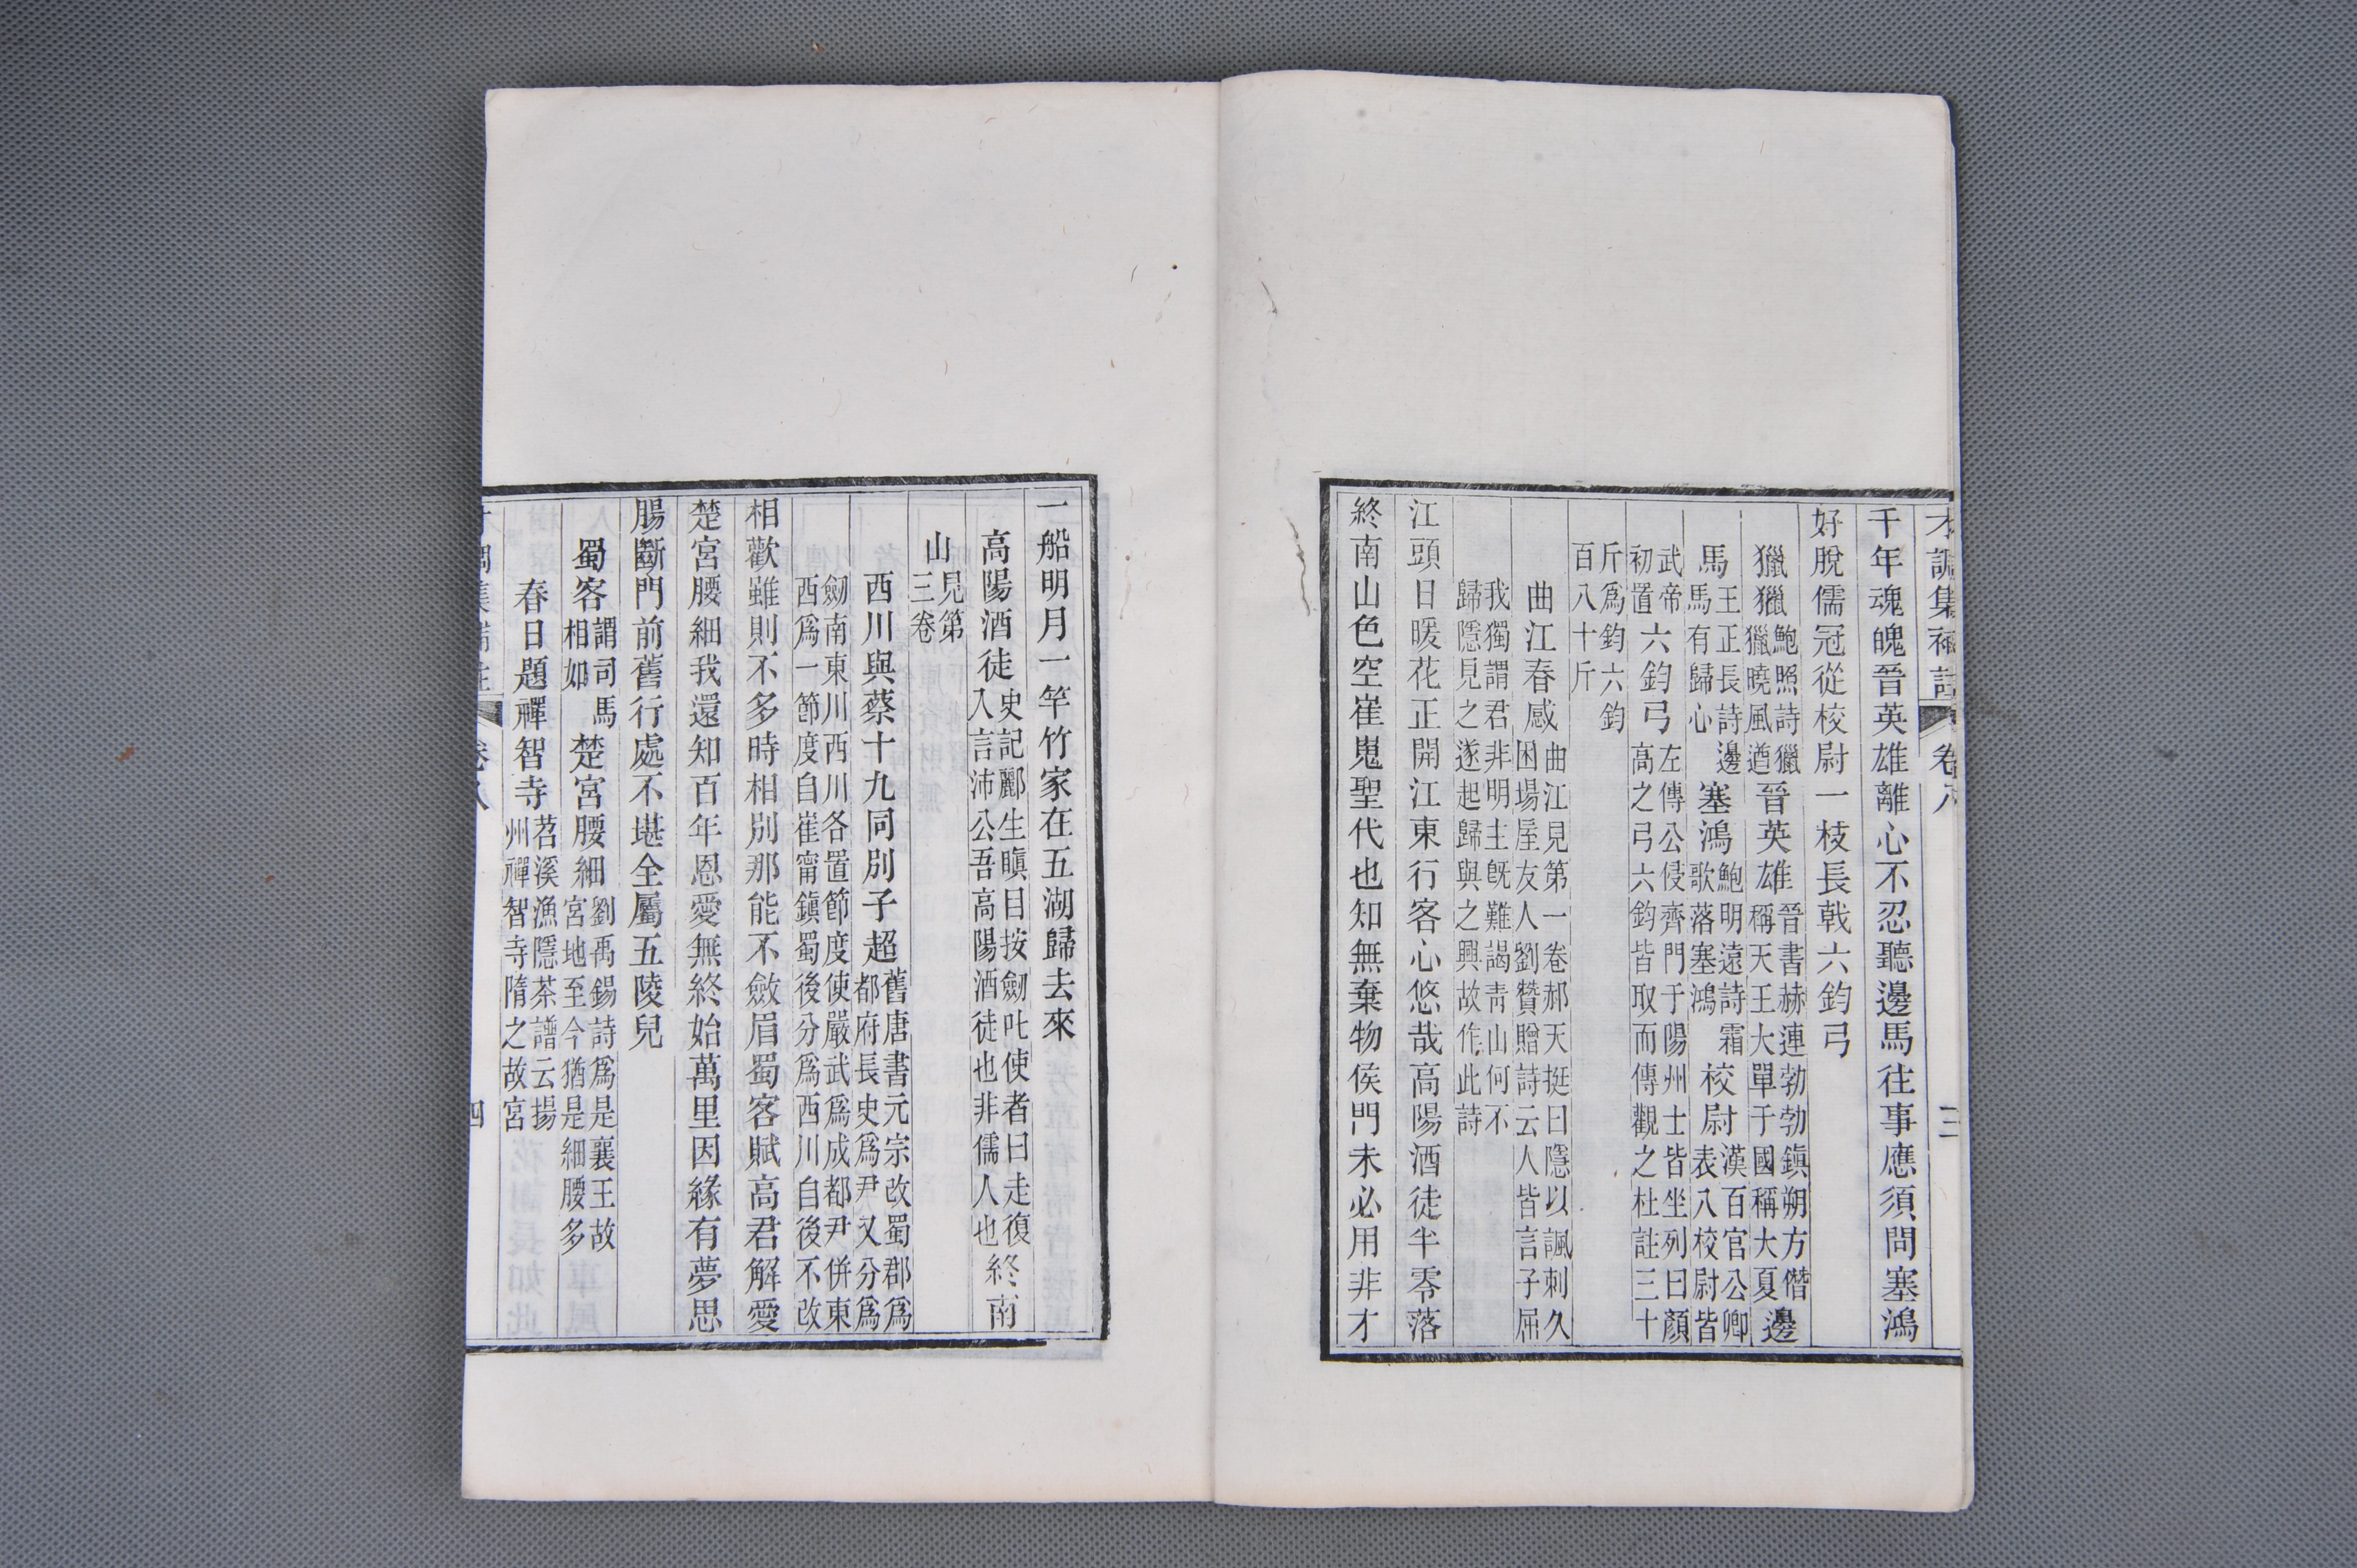 才調集補註 卷八 三
千年魂魄晉英雄離心不忍聽邊馬往事應須問塞鴻
好脫儒冠從校尉一枝長戟六鈞弓
獵獵鮑照詩獵獵曉風遒晉英雄晉書赫連勃勃鎮朔方僭稱天王大單于國稱大夏邊
馬王正長詩邊馬有歸心塞鴻鮑明遠詩霜歌落塞鴻校尉漢百官公卿表八校尉皆
武帝初置六鈞弓左傳公侵齊門于陽州士皆坐列曰顏高之弓六鈞皆取而傳觀之杜註三十
斤爲鈞六鈞百八十斤
曲江春感曲江見第一卷郝天挺曰隱以諷刺久困場屋友人劉贊贈詩云人皆言子屈
我獨謂君非明主旣難謁靑山何不歸隱見之遂起歸與之興故作此詩
江頭日暖花正開江東行客心悠哉高陽酒徒半零落
終南山色空崔嵬聖代也知無棄物侯門未必用非才
一船明月一竿竹家在五湖歸去來
高陽酒徒史記酈生瞋目按劒叱使者曰走復入言沛公吾高陽酒徒也非儒人也終南
山見第三卷
西川與蔡十九同別子超舊唐書元宗改蜀郡爲都府長史爲尹又分爲
劒南東川西川各置節度使嚴武爲成都尹併東西爲一節度自崔甯鎮蜀後分爲西川自後不改
相歡雖則不多時相別那能不斂眉蜀客賦高君解愛
楚宮腰細我還知百年恩愛無終始萬里因緣有夢思
腸斷門前舊行處不堪全屬五陵兒
蜀客謂司馬相如楚宮腰細劉禹錫詩爲是襄王故宮地至今猶是細腰多
春日題禪智寺苕溪漁隱茶譜云揚州禪智寺隋之故宮
才調集補註 卷八 四